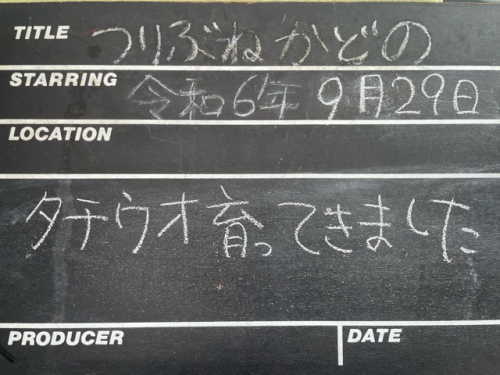 TITLE つりぶねかどの
STARRING 令和6年9月29日
LOCATION
タチウオ育ってきました
PRODUCER DATE